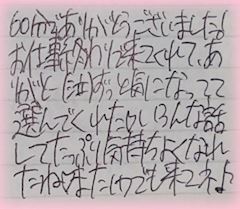 60分でありがとうございました!
お仕事終わりに来てくれて、あ
りがと なずっと気になってて
選んでくれたりいろんな話
してたっぷり気持ちよくなれ
たねまたいつでも来てネ